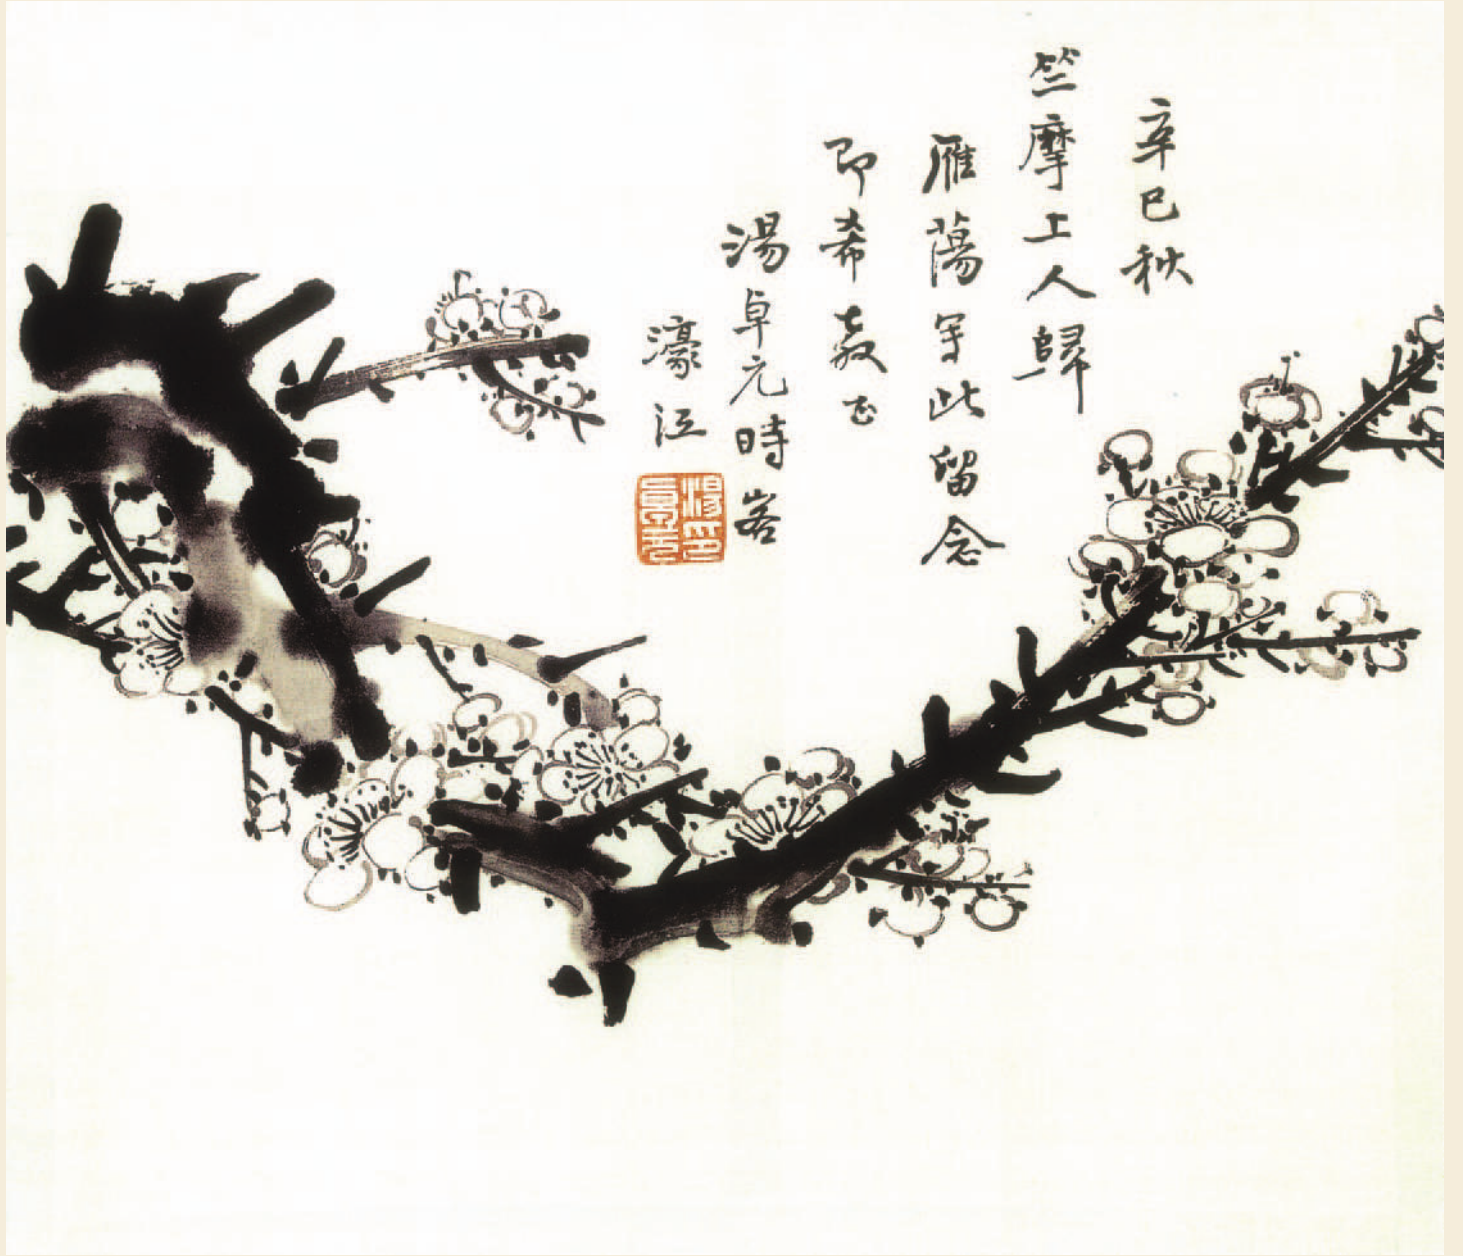 辛巳秋
竺摩上人歸
雁蕩写此留念
即希教正
湯卓元時客
濠江